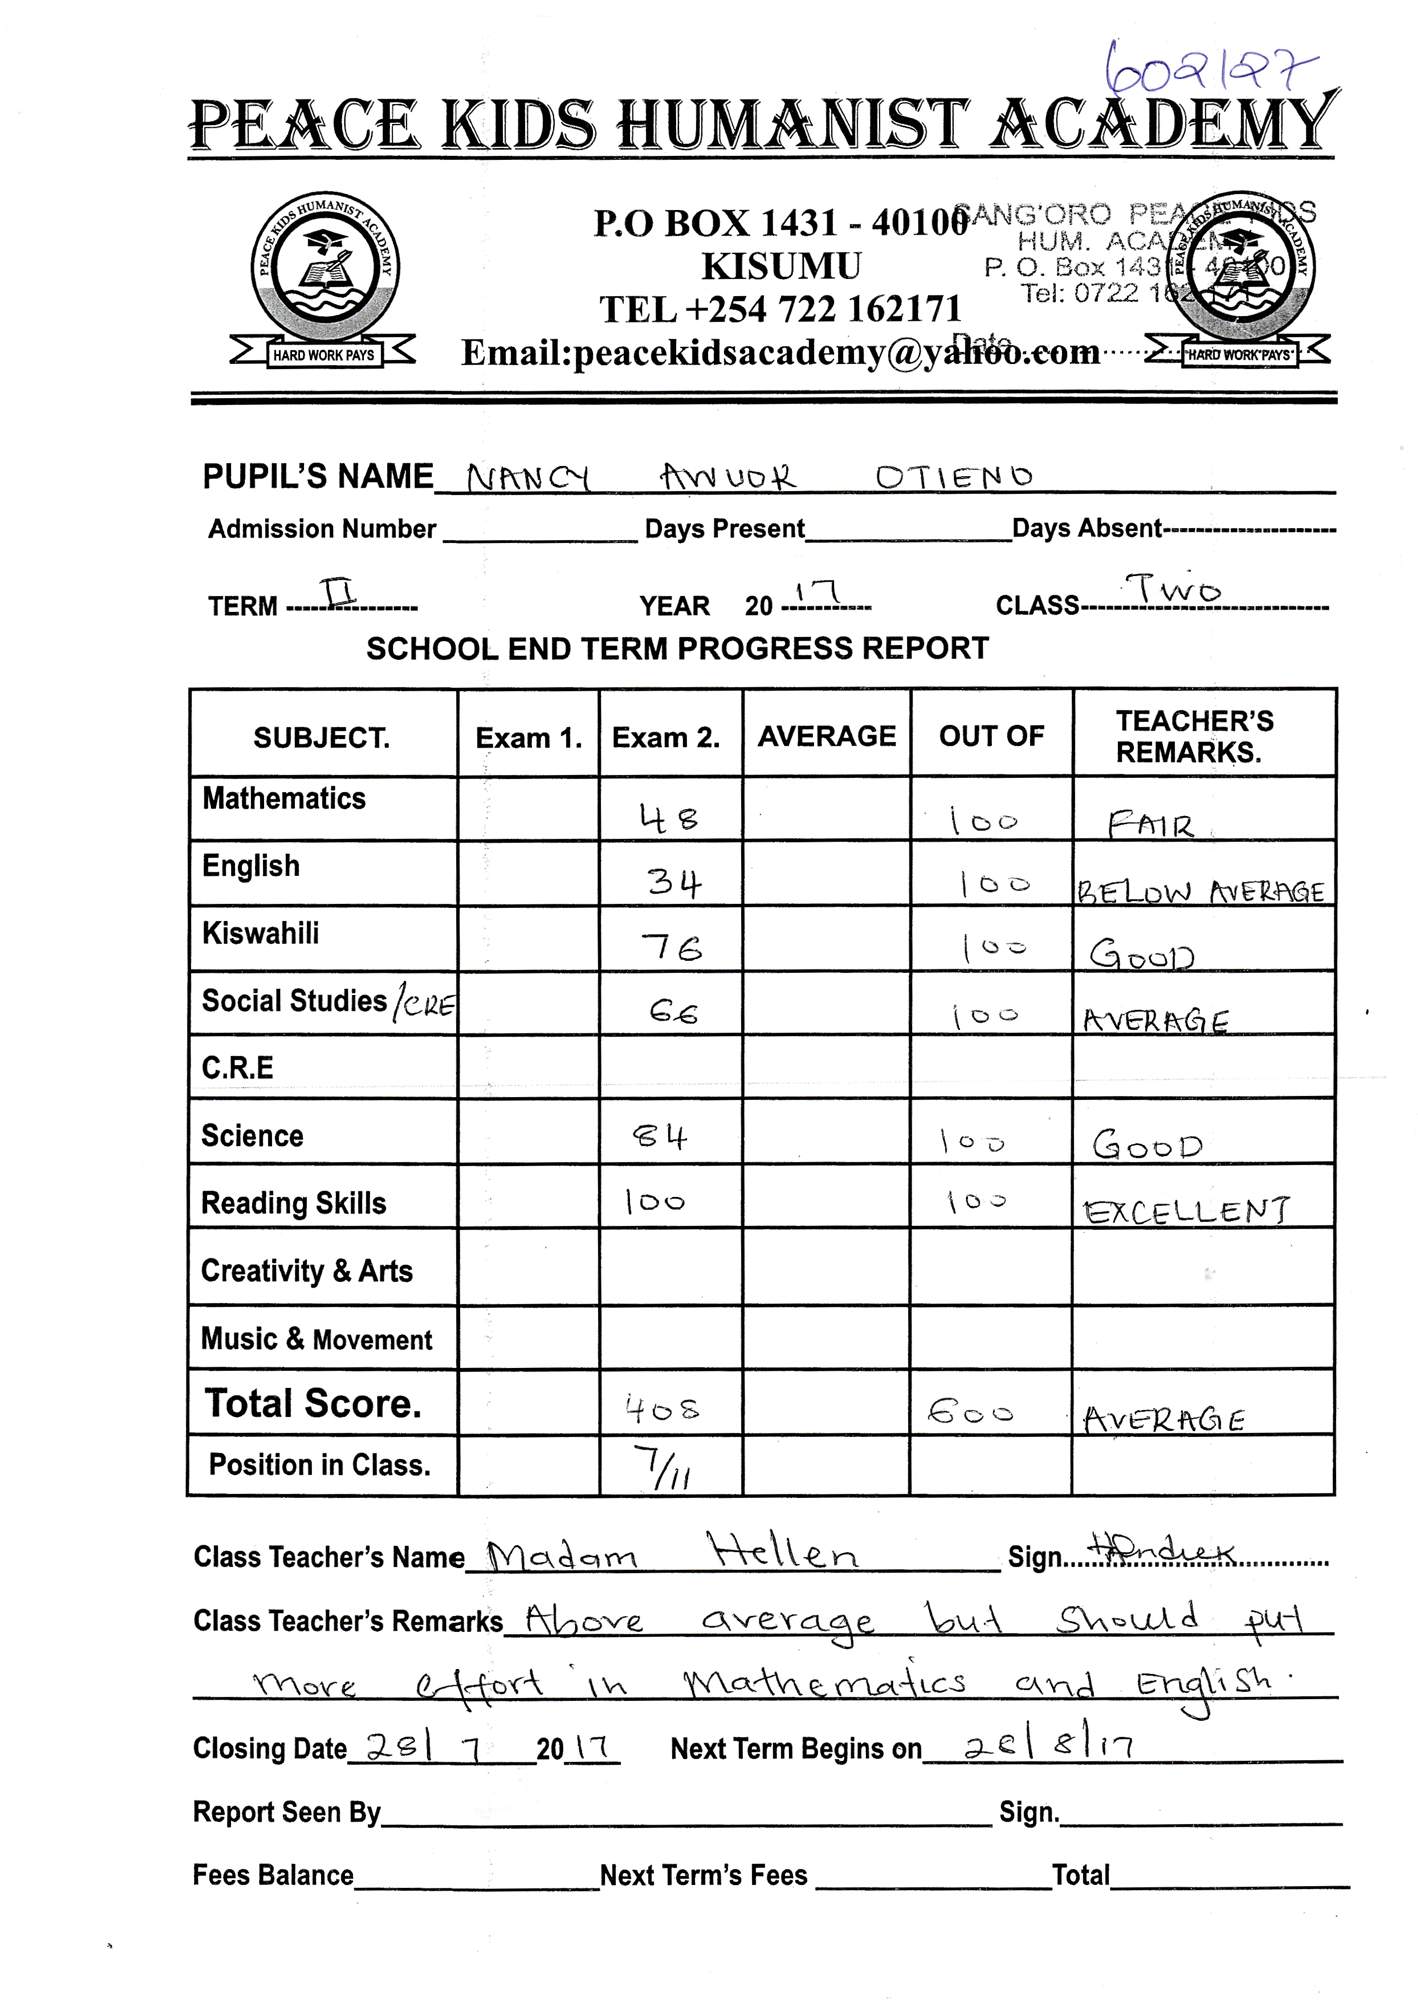 602127
PEACE KIDS HUMANIST ACADEMY
PEACE KIDS HUMANIST ACADEMY
HARD WORK PAYS
P.O BOX 1431 - 40100
KISUMU
TEL +254 722 162171
Email:peacekidsacademy@yahoo.com
SANG'ORO PEACE KIDS
HUM. ACADEMY
P. O. Box 1431 - 40100
Tel: 0722 162171
Date
PEACE KIDS HUMANIST ACADEMY
HARD WORK PAYS
PUPIL'S NAME NANCY AWUOR OTIENO
Admission Number Days Present Days Absent
TERM II YEAR 2017 CLASS Two
SCHOOL END TERM PROGRESS REPORT
SUBJECT. Exam 1. Exam 2. AVERAGE OUT OF TEACHER'S REMARKS.
Mathematics 48 100 FAIR
English 34 100 BELOW AVERAGE
Kiswahili 76 100 GOOD
Social Studies /CRE 66 100 AVERAGE
C.R.E
Science 84 100 GOOD
Reading Skills 100 100 EXCELLENT
Creativity & Arts
Music & Movement
Total Score. 408 600 AVERAGE
Position in Class. 7/11
Class Teacher's Name Madam Hellen Sign.
Class Teacher's Remarks Above average but should put
more effort in Mathematics and English.
Closing Date 28/ 7 2017 Next Term Begins on 28/8/17
Report Seen By Sign.
Fees Balance Next Term's Fees Total